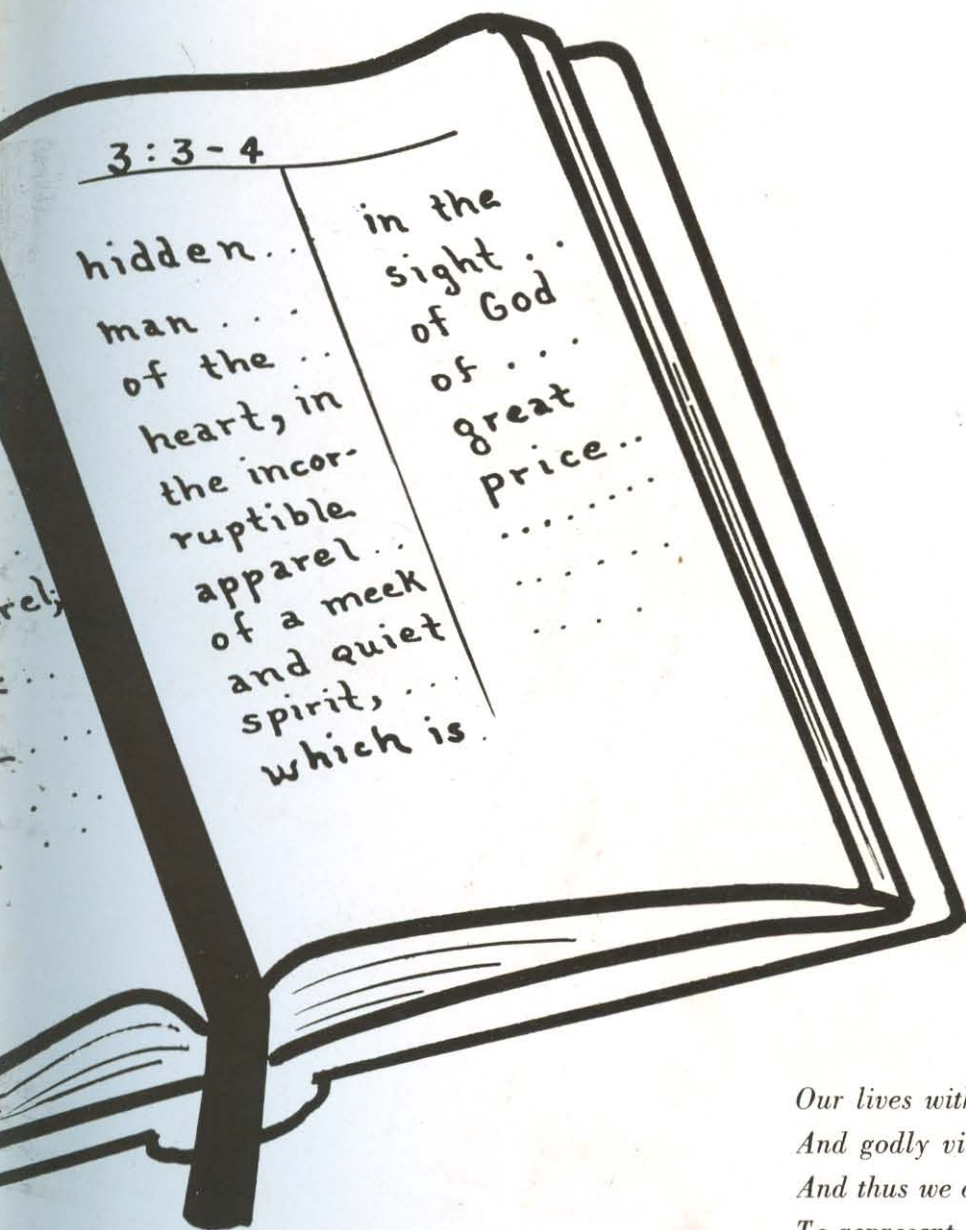 rel;
3:3-4
hidden..
man ...
of the ..
heart, in
the incor-
ruptible
apparel ..
of a meek
and quiet
spirit, ...
which is.
in the
sight ..
of God
of ...
great
price..
........
......
....
Our lives with
And godly vi
And thus we
To represent